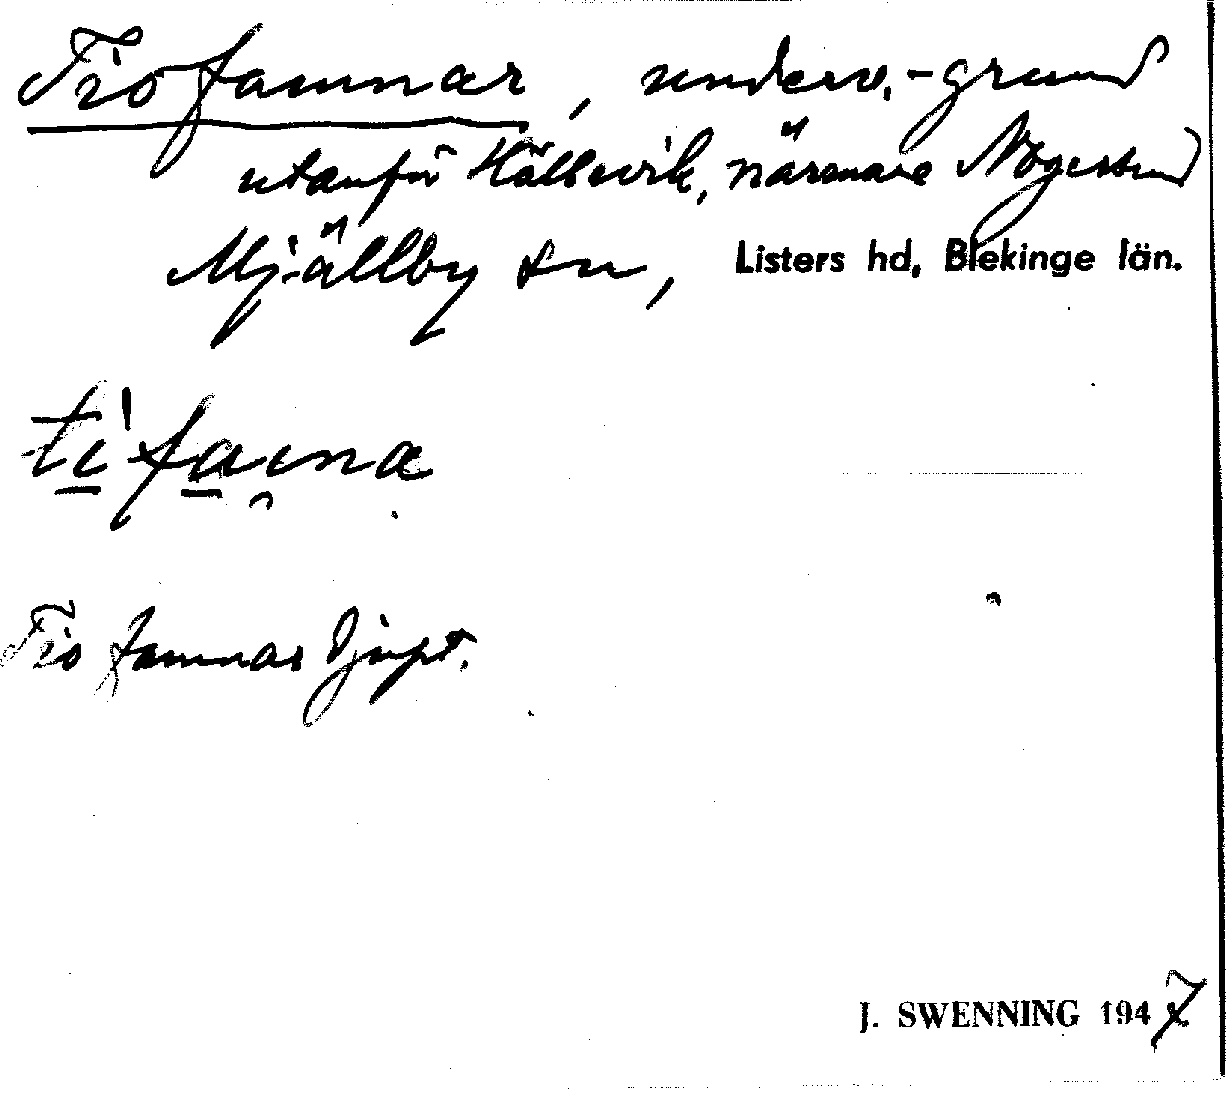 Tiofamnar, underv.-grund
utanför Hällevik, närmare Nogersund
Mjällby sn, Listers hd, Blekinge län.
ti'famna
Tio famnar djupt.
J. SWENNING 1947